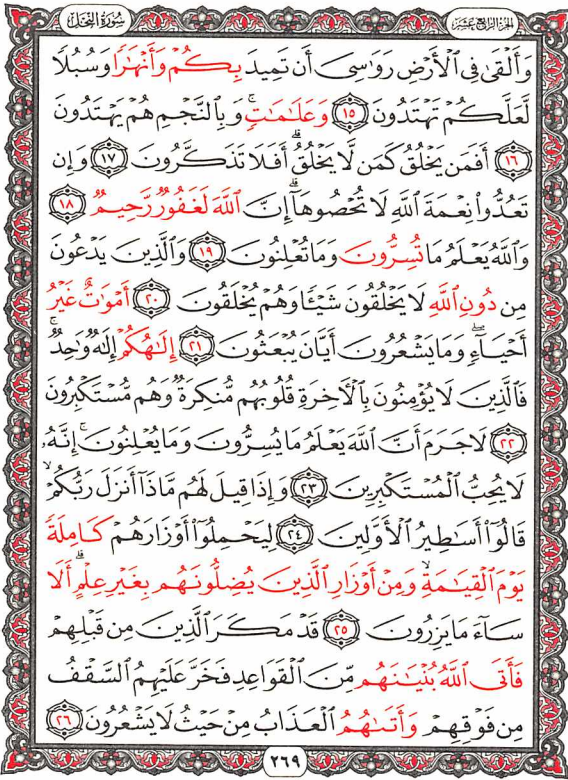 الجزء الرابع عشر
سورة النحل
وَأَلْقَىٰ فِي ٱلْأَرْضِ رَوَٰسِيَ أَن تَمِيدَ بِكُمْ وَأَنْهَٰرًا وَسُبُلًا
لَّعَلَّكُمْ تَهْتَدُونَ ١٥ وَعَلَٰمَٰتٍۚ وَبِٱلنَّجْمِ هُمْ يَهْتَدُونَ
١٦ أَفَمَن يَخْلُقُ كَمَن لَّا يَخْلُقُۗ أَفَلَا تَذَكَّرُونَ ١٧ وَإِن
تَعُدُّوا۟ نِعْمَةَ ٱللَّهِ لَا تُحْصُوهَآۗ إِنَّ ٱللَّهَ لَغَفُورٌ رَّحِيمٌ ١٨
وَٱللَّهُ يَعْلَمُ مَا تُسِرُّونَ وَمَا تُعْلِنُونَ ١٩ وَٱلَّذِينَ يَدْعُونَ
مِن دُونِ ٱللَّهِ لَا يَخْلُقُونَ شَيْـًٔا وَهُمْ يُخْلَقُونَ ٢٠ أَمْوَٰتٌ غَيْرُ
أَحْيَآءٍۖ وَمَا يَشْعُرُونَ أَيَّانَ يُبْعَثُونَ ٢١ إِلَٰهُكُمْ إِلَٰهٌ وَٰحِدٌۚ
فَٱلَّذِينَ لَا يُؤْمِنُونَ بِٱلْـَٔاخِرَةِ قُلُوبُهُم مُّنكِرَةٌ وَهُم مُّسْتَكْبِرُونَ
٢٢ لَا جَرَمَ أَنَّ ٱللَّهَ يَعْلَمُ مَا يُسِرُّونَ وَمَا يُعْلِنُونَۚ إِنَّهُۥ
لَا يُحِبُّ ٱلْمُسْتَكْبِرِينَ ٢٣ وَإِذَا قِيلَ لَهُم مَّاذَآ أَنزَلَ رَبُّكُمْۙ
قَالُوٓا۟ أَسَٰطِيرُ ٱلْأَوَّلِينَ ٢٤ لِيَحْمِلُوٓا۟ أَوْزَارَهُمْ كَامِلَةً
يَوْمَ ٱلْقِيَٰمَةِۙ وَمِنْ أَوْزَارِ ٱلَّذِينَ يُضِلُّونَهُم بِغَيْرِ عِلْمٍۗ أَلَا
سَآءَ مَا يَزِرُونَ ٢٥ قَدْ مَكَرَ ٱلَّذِينَ مِن قَبْلِهِمْ
فَأَتَى ٱللَّهُ بُنْيَٰنَهُم مِّنَ ٱلْقَوَاعِدِ فَخَرَّ عَلَيْهِمُ ٱلسَّقْفُ
مِن فَوْقِهِمْ وَأَتَىٰهُمُ ٱلْعَذَابُ مِنْ حَيْثُ لَا يَشْعُرُونَ ٢٦
٢٦٩